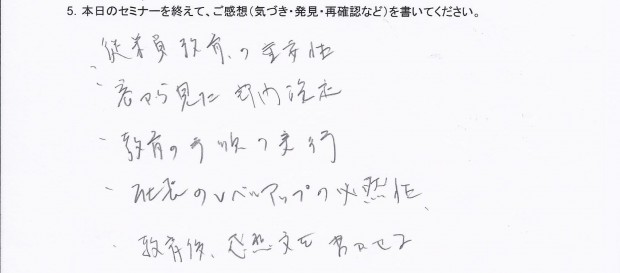 5. 本日のセミナーを終えて、ご感想(気づき・発見・再確認など)を書いてください。
従業員教育の重要性
、客から見た 室内改走
、教育の手順の実行
、社長のレベルアップの必然性、
・教育後、感想文を書かせる